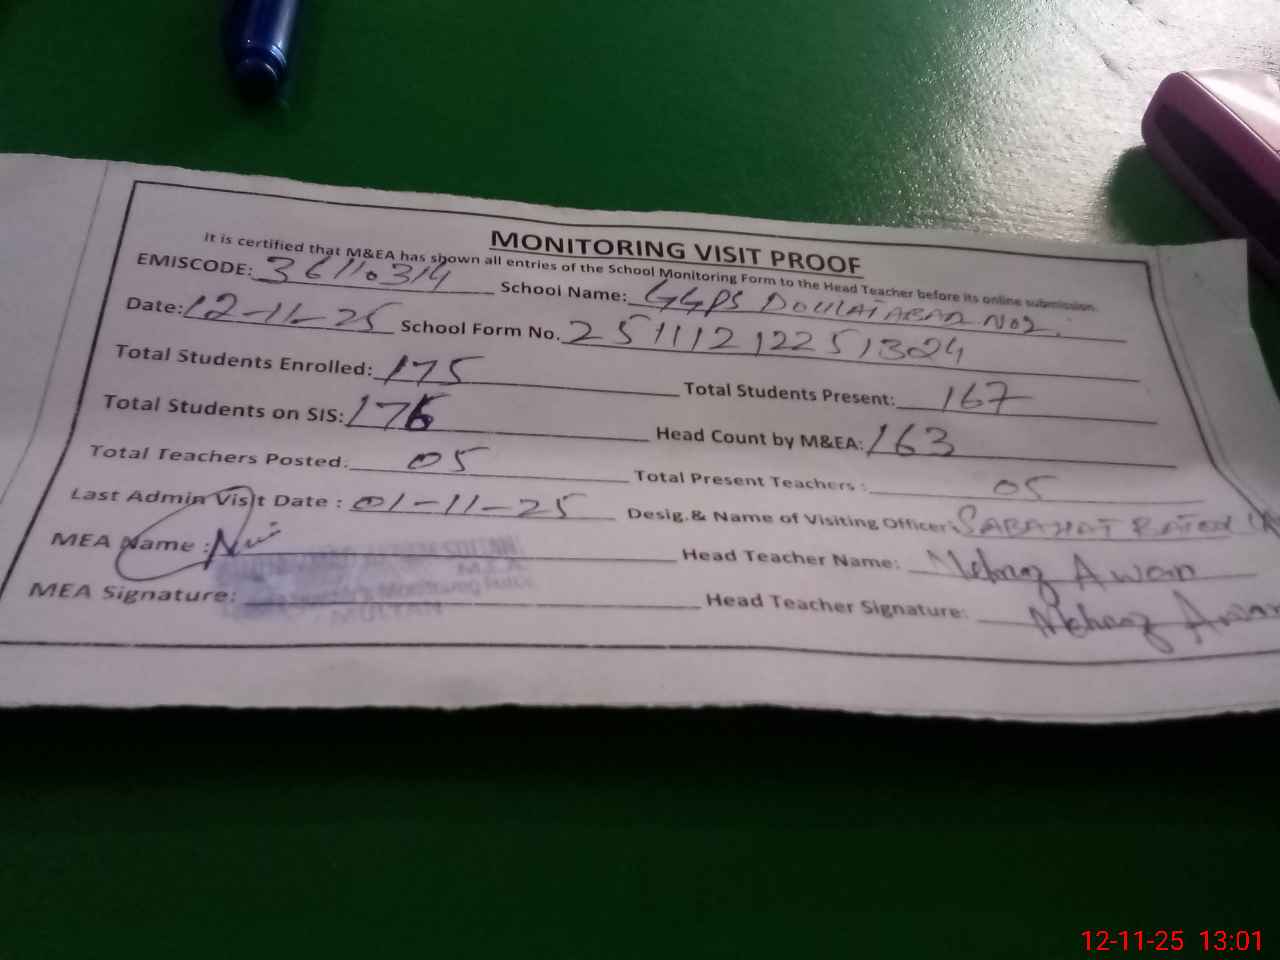 MONITORING VISIT PROOF
It is certified that M&EA has shown all entries of the School Monitoring Form to the Head Teacher before its online submission.
EMISCODE: 36110314 School Name: GGPS DOULATABAD NO2.
Date: 12-11-25 School Form No. 251112122513024
Total Students Enrolled: 175 Total Students Present: 167
Total Students on SIS: 176 Head Count by M&EA: 163
Total Teachers Posted: 05 Total Present Teachers : 05
Last Admin Visit Date : 01-11-25 Desig.& Name of Visiting Officer: SABAHAT BATOOL
MEA Name : Head Teacher Name: Awan
MEA Signature: Head Teacher Signature: Awan
12-11-25 13:01